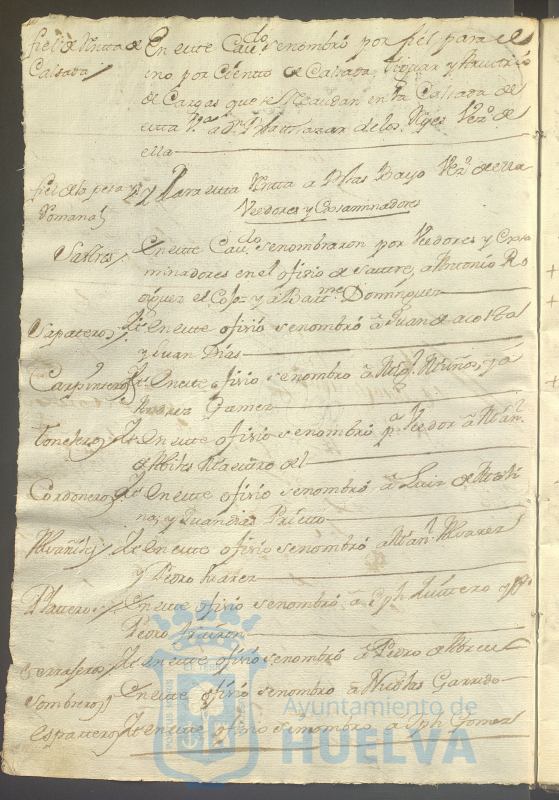 fiel de Renta de En este Cavdo. se nombró por fiel para el
Calsada / uno por Ciento de Calsada, y
de Cargas que se Recaudan en la Calsada de
esta Va. a Dn. Balthazar de los Reyes Vezo. de
ella
fiel de la pesa y / y Para esta Renta a Blas Bayo Vezo. de ella
Romana
Veedores y Examinadores
Sastres / En este Cavdo. se nombraron por Veedores y Exa
minadores en el ofisio de sastre, a Antonio Ro
driguez el Coxo y a Bartme. Dominguez
Sapateros / Yt. en este ofisio se nombró a Juan de acosta
y Juan Dias
Carpinteros / Yt. En este ofisio se nombro a Migl. Nuñes, y a
Andres Gomez
Toneleros / Yt. en este ofisio se nombró pa. Veedor a Man.
de Maestro del
Cordoneros / Yt. En este ofisio se nombró a Luis de
no, y Juan Dias Prieto
Alvañiles / Yt. en este ofisio se nombró a Man. Alvarez
y Pedro Suarez
Plateros / En este ofisio se nombró a Jph
Pedro
serrajeros / Yt. en este ofisio se nombró a Pedro de Abreu
sombreros / En este ofisio se nombró a Nicolas Garrido
esparteros / Yt. en este ofisio se nombro a Jph Gomez
Ayuntamiento de
HUELVA